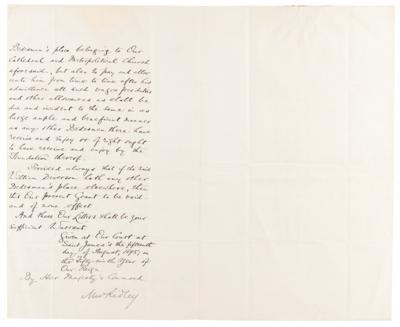 Bedesman's place belonging to Our
Cathedral and Metropolitical Church
aforesaid, but also to pay and allow
unto him from time to time after his
admittance all such wages fees duties
and other allowances as shall be
due and incident to the same in as
large ample and beneficial manner
as any other Bedesmen there have
receive and enjoy or of right ought
to have receive and enjoy by the
Foundation thereof.
Provided always that if the said
William hath any other
Bedesman's place elsewhere, then
this Our present Grant to be void
and of none effect
And these Our Letters shall be your
sufficient Warrant.
Given at Our Court at
Saint James's the fifteenth
day of August, 1895; in
the Fifty-ninth Year of
Our Reign.
By Her Majesty's Command
M W Ridley